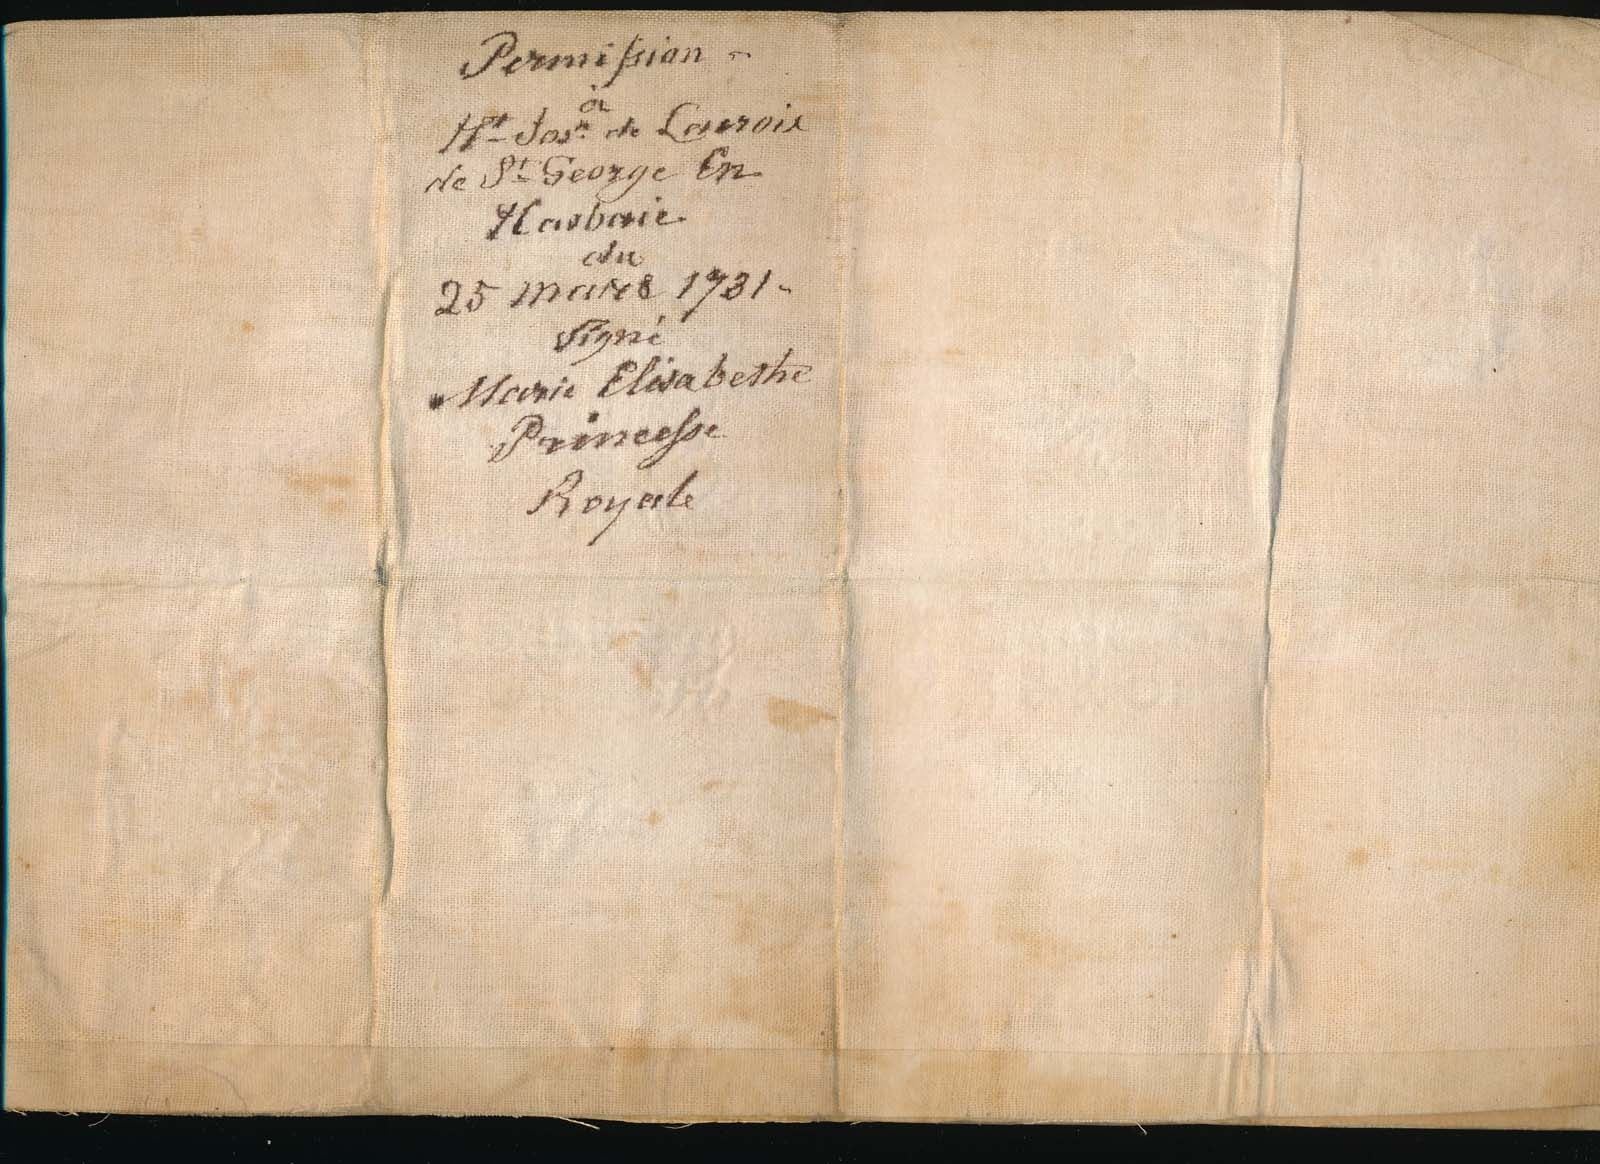 Permission -
à
Ht Josn de Lauroix
de St George En
Hasbaie
du
25 mars 1731 -
signé
Marie Elisabethe
Princesse
Royale